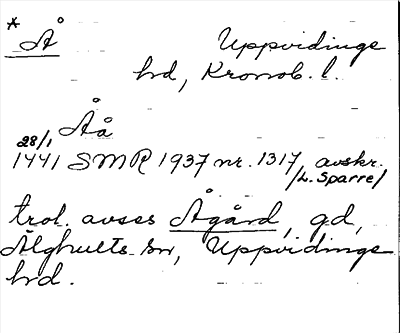 * Å Uppvidinge
hd, Kronob. l.
Åå
28/1
1441 SMR 1937 nr. 1317, avskr.
/L. Sparre/
trol. avses Ågård, gd,
Älghults sn, Uppvidinge
hd.